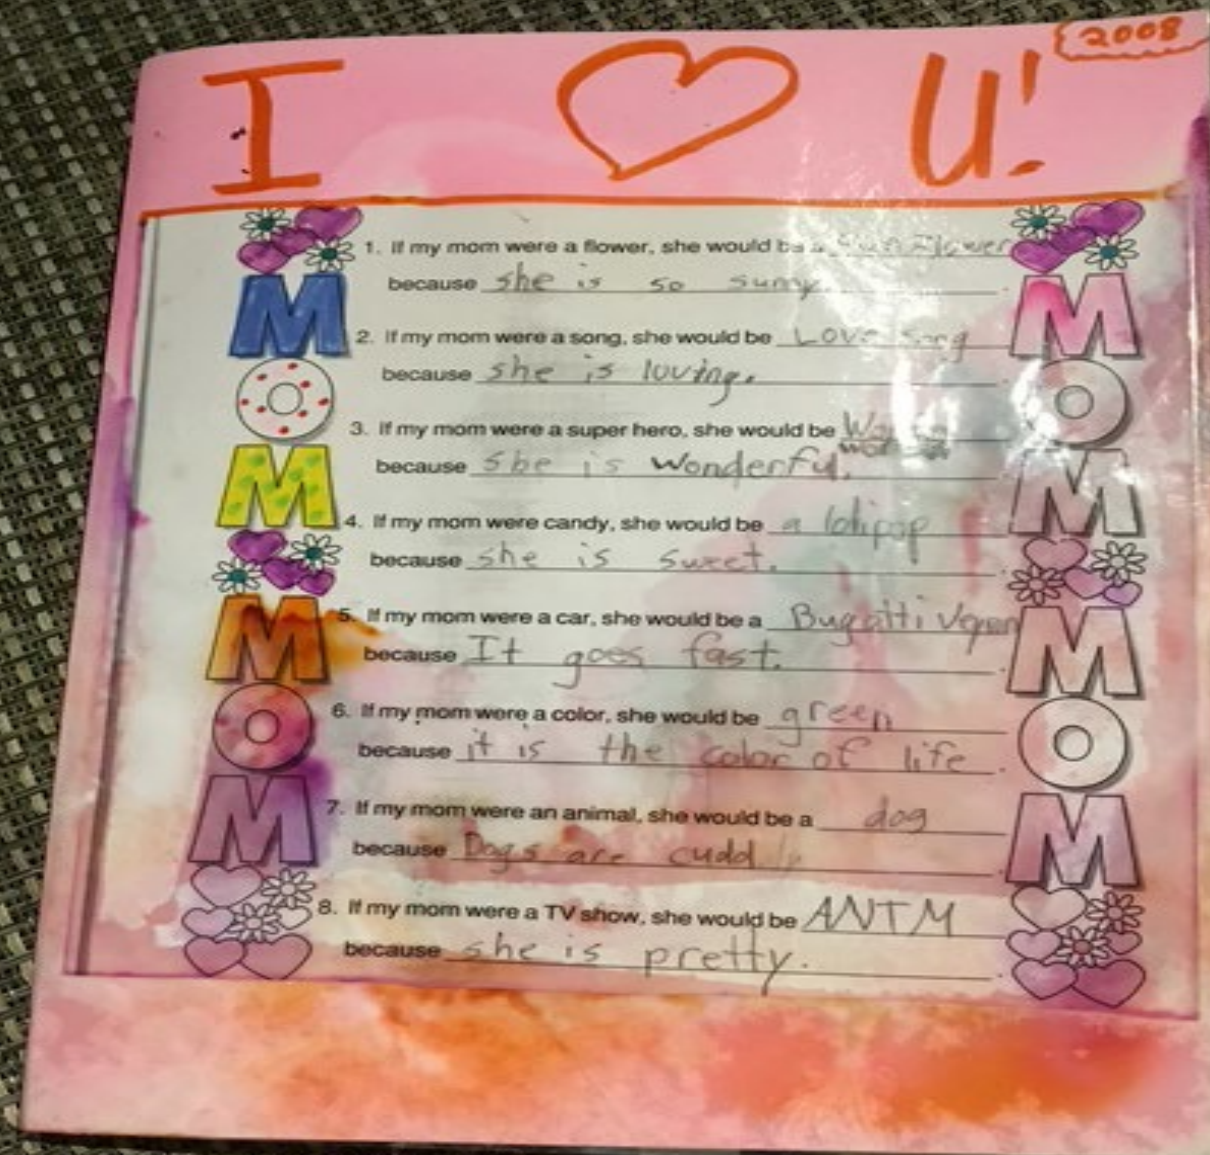 2008
I ♡ U!
1. If my mom were a flower, she would be a Sun Flower
because she is so sunny.
2. If my mom were a song, she would be Love Song
because she is loving.
3. If my mom were a super hero, she would be Wonder
woman
because she is wonderful.
4. If my mom were candy, she would be a lolipop
because she is sweet.
5. If my mom were a car, she would be a Bugatti
because It goes fast.
6. If my mom were a color, she would be green
because it is the color of life.
7. If my mom were an animal, she would be a dog
because Dogs are cuddly
8. If my mom were a TV show, she would be ANTM
because she is pretty.
M O M
M O M
M O M
M O M